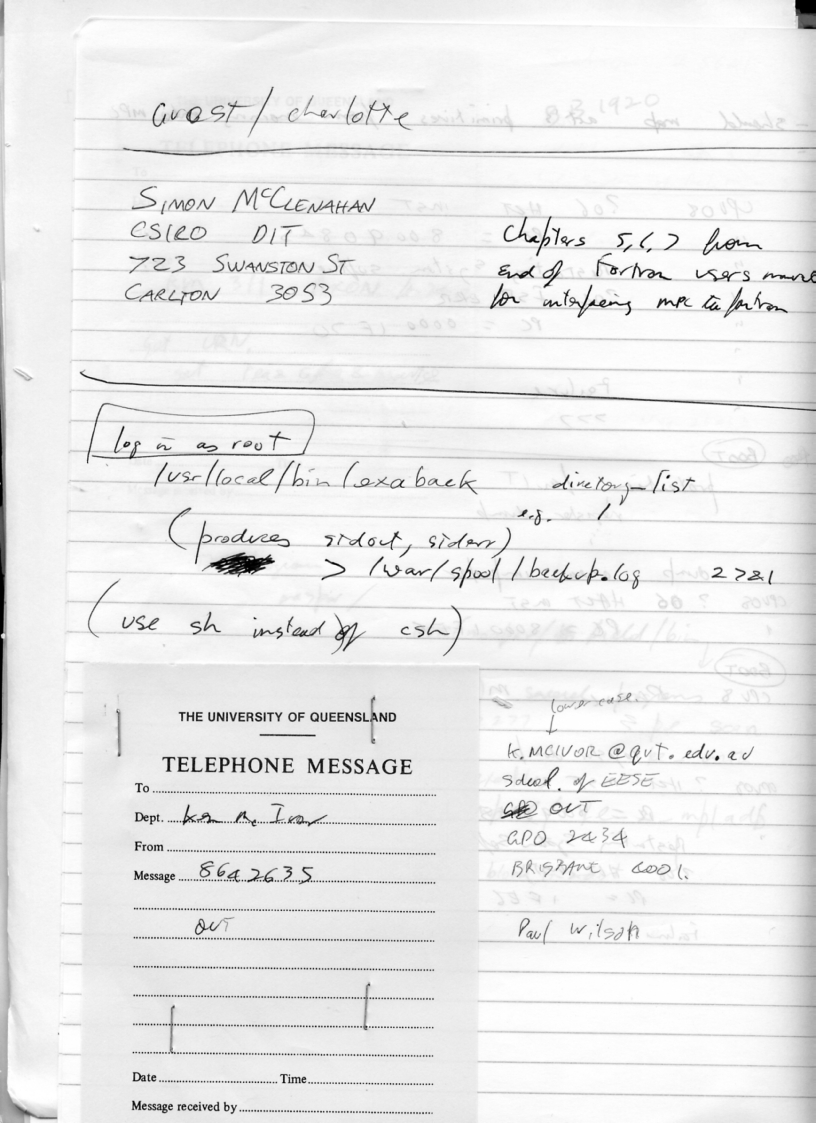 guest / charlotte
SIMON McCLENAHAN
CSIRO DIT
723 SWANSTON ST
CARLTON 3053
Chapters 5, 6, 7 from
end of Fortran users manu
for interfacing mpc to fortran
log in as root
/usr/local/bin/exaback directory-list
e.g. /
(produces stdout, stderr)
> /var/spool/backup.log 2>&1
(use sh instead of csh)
THE UNIVERSITY OF QUEENSLAND
TELEPHONE MESSAGE
To
Dept. Ken Mc Ivor
From
Message 864 2635
QUT
Date Time
Message received by
lower case.
K.MCIVOR@qut.edu.au
School of EESE
QUT
GPO 2434
BRISBANE 4001.
Paul Wilson